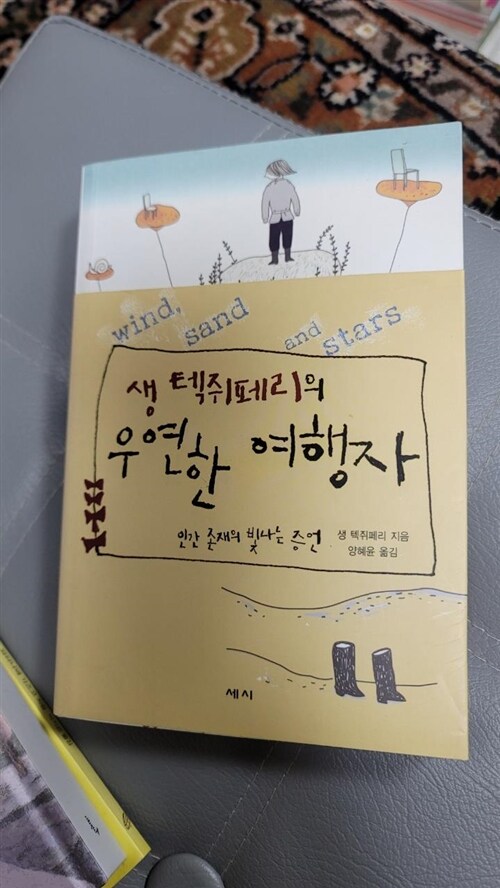 wind, sand and stars
생 텍쥐페리의
우연한 여행자
인간 존재의 빛나는 증언
생 텍쥐페리 지음
양혜윤 옮김
세시